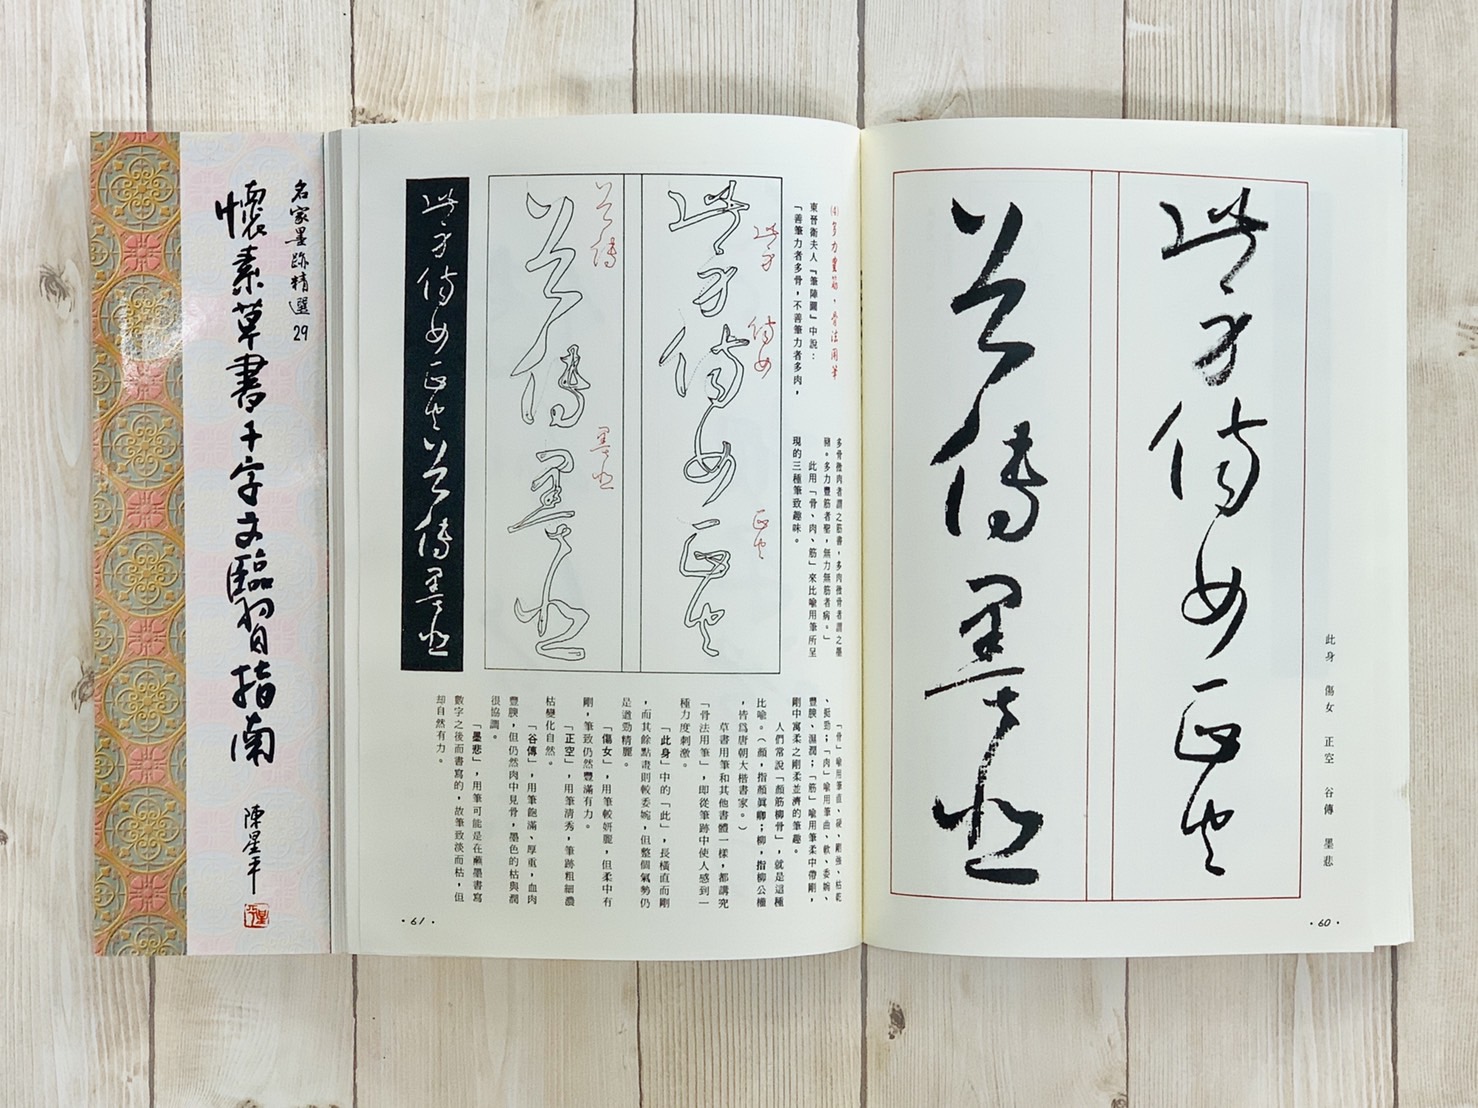 名家墨跡精選29
懷素草書千字文臨習指南
陳星平
此身 傷女 正空 谷傳 墨悲
此身傷女正空
谷傳墨悲
·60·
(4)多力豐筋，骨法用筆
東晉衛夫人『筆陣圖』中說：
「善筆力者多骨，不善筆力者多肉，
多骨微肉者謂之筋書，多肉微骨者謂之墨
豬。多力豐筋者聖，無力無筋者病。」
此用「骨、肉、筋」來比喻用筆所呈
現的三種筆致趣味。
「骨」喻用筆直、硬、剛強、枯乾
、挺勁；「肉」喻用筆曲、軟、委婉、
豐腴、濕潤；「筋」喻用筆柔中帶剛，
剛中寓柔之剛柔並濟的筆趣。
人們常說「顏筋柳骨」，就是這種
比喻。（顏，指顏眞卿；柳，指柳公權
，皆爲唐朝大楷書家。）
草書用筆和其他書體一樣，都講究
「骨法用筆」，即從筆跡中使人感到一
種力度刺激。
「此身」中的「此」，長橫直而剛
，而其餘點畫則較委婉，但整個氣勢仍
是遒勁精麗。
「傷女」，用筆較妍麗，但柔中有
剛，筆致仍然豐滿有力。
「正空」，用筆清秀，筆跡粗細濃
枯變化自然。
「谷傳」，用筆飽滿、厚重，血肉
豐腴，但仍然肉中見骨，墨色的枯與潤
很協調。
「墨悲」，用筆可能是在蘸墨書寫
數字之後而書寫的，故筆致淡而枯，但
却自然有力。
此身
傷女
正空
此身傷女正空
谷傳
墨悲
谷傳墨悲
此身傷女正空谷傳墨悲
·61·